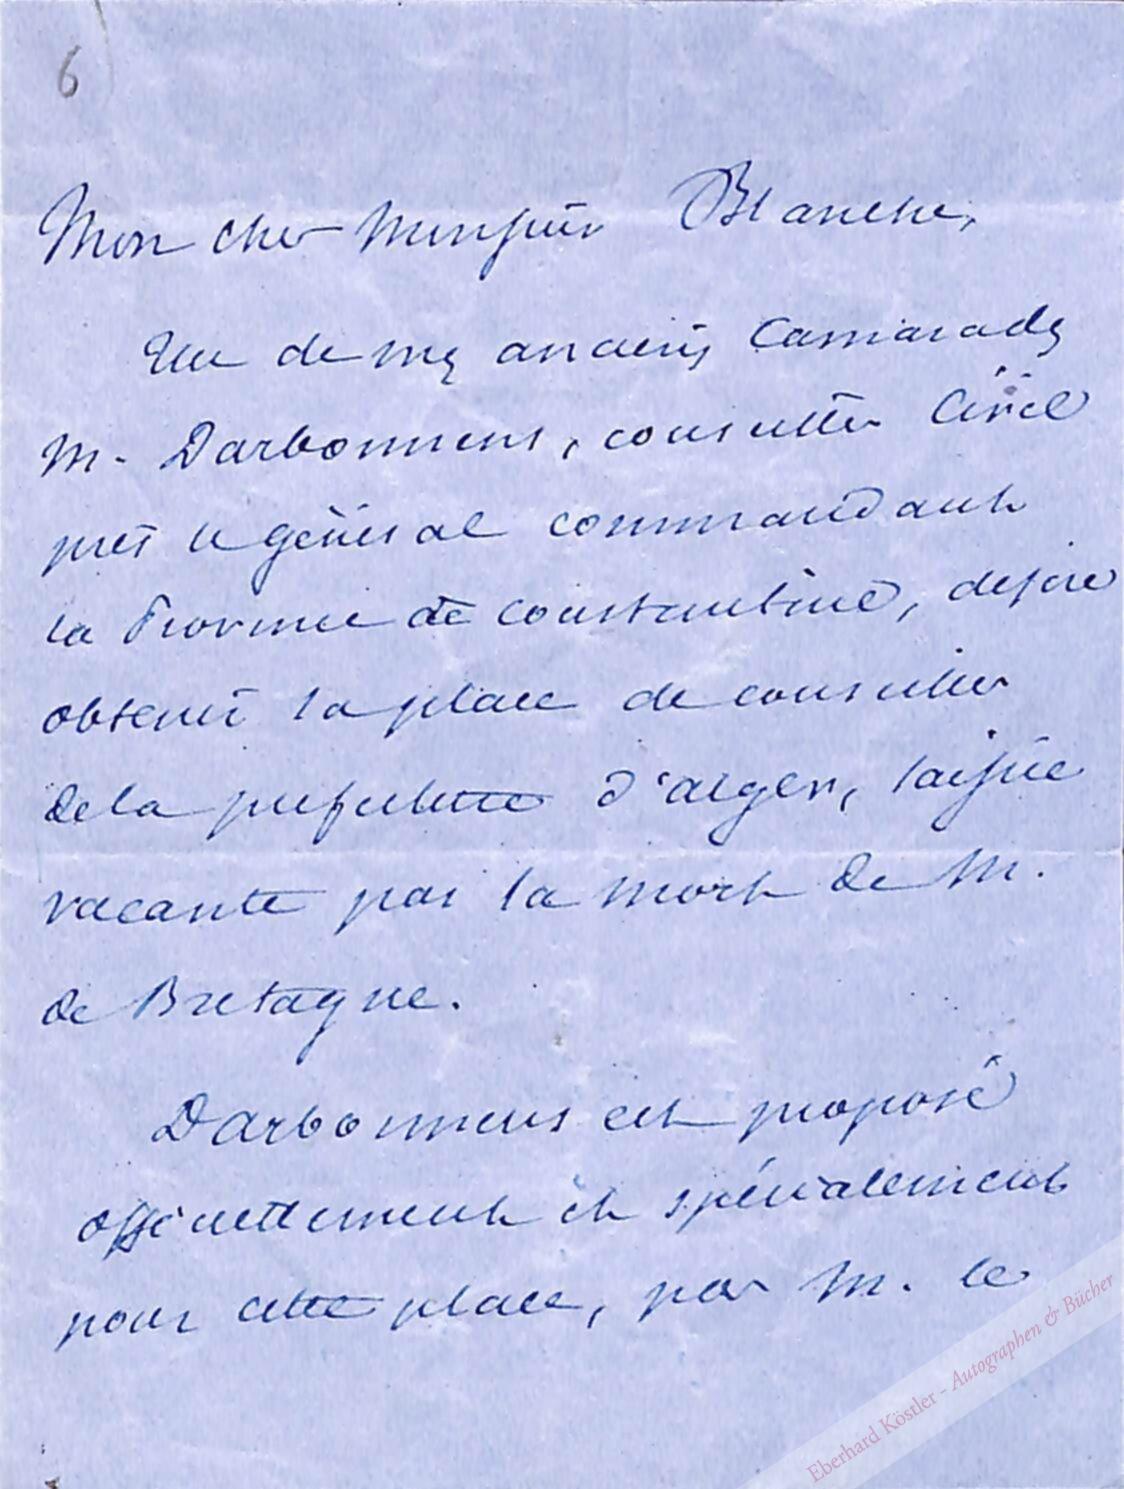 6
Mon cher Monsieur Blanche,
Un de mes anciens camarades
M. Darbonnens, conseiller Civil
près le général commandant
la Province de Constantine, desire
obtenir la place de conseiller
de la prefecture d'alger, laissée
vacante par la mort de M.
de Bretagne.
Darbonnens est proposé
officiellement et spécialement
pour cette place, par M. le
Eberhard Köstler - Autographen & Bücher